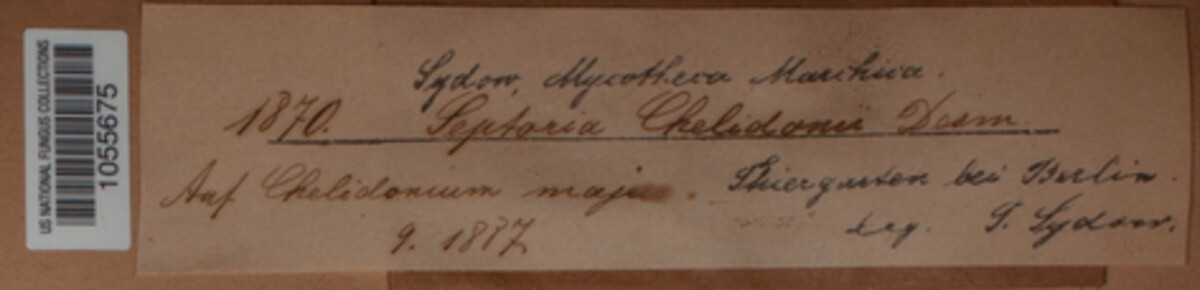 US NATIONAL FUNGUS COLLECTIONS
1055675
Sydow, Mycotheca Marchica.
1870. Septoria Chelidonii Desm.
Auf Chelidonium majus. Thiergarten bei Berlin.
9. 1887 leg. P. Sydow.